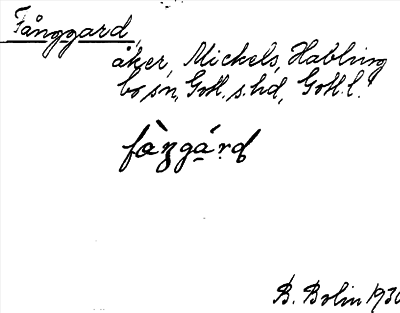 Fånggard,
åker, Mickels, Habling
bo sn, Gotl. s. hd, Gotl. l.
B. Bolin 1930